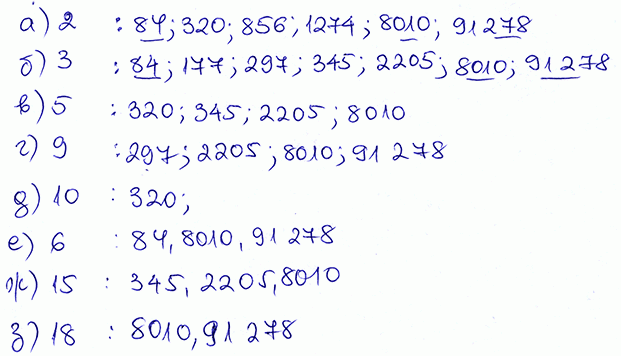 а) 2 : 84; 320; 856; 1274; 8010; 91 278
б) 3 : 84; 177; 297; 345; 2205; 8010; 91 278
в) 5 : 320; 345; 2205; 8010
г) 9 : 297; 2205; 8010; 91 278
д) 10 : 320;
е) 6 : 84, 8010, 91 278
ж) 15 : 345, 2205, 8010
з) 18 : 8010, 91 278